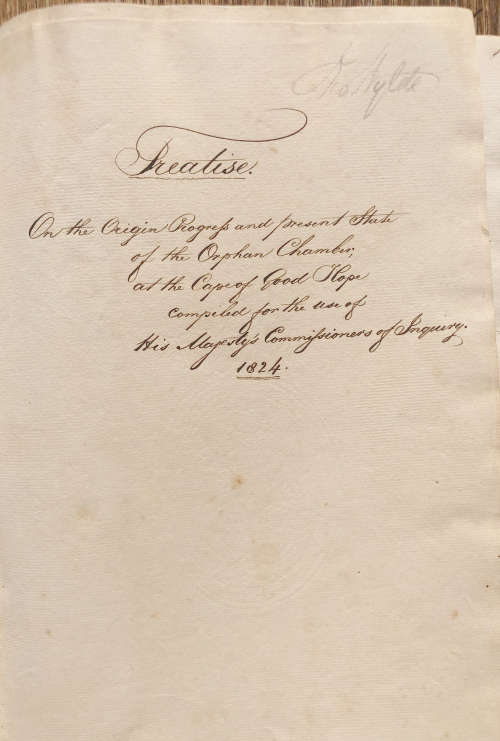 Treatise.
On the Origin Progress and present State
of the Orphan Chamber,
at the Cape of Good Hope
compiled for the use of
His Majesty's Commissioners of Inquiry.
1824.